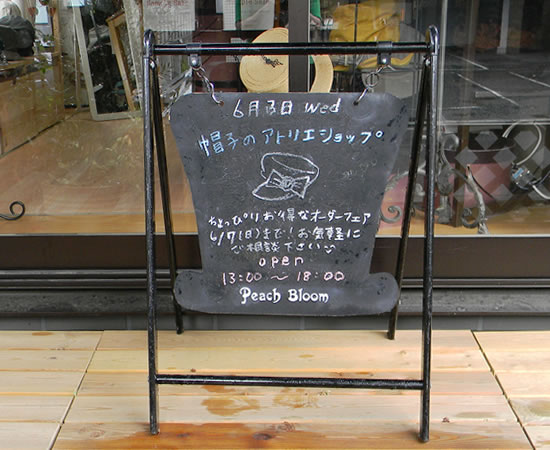 6月3日 Wed
帽子のアトリエショップ。
ちょっぴりお得なオーダーフェア
6/7(日)まで!お気軽に
ご相談下さい
open
13:00〜18:00
Peach Bloom